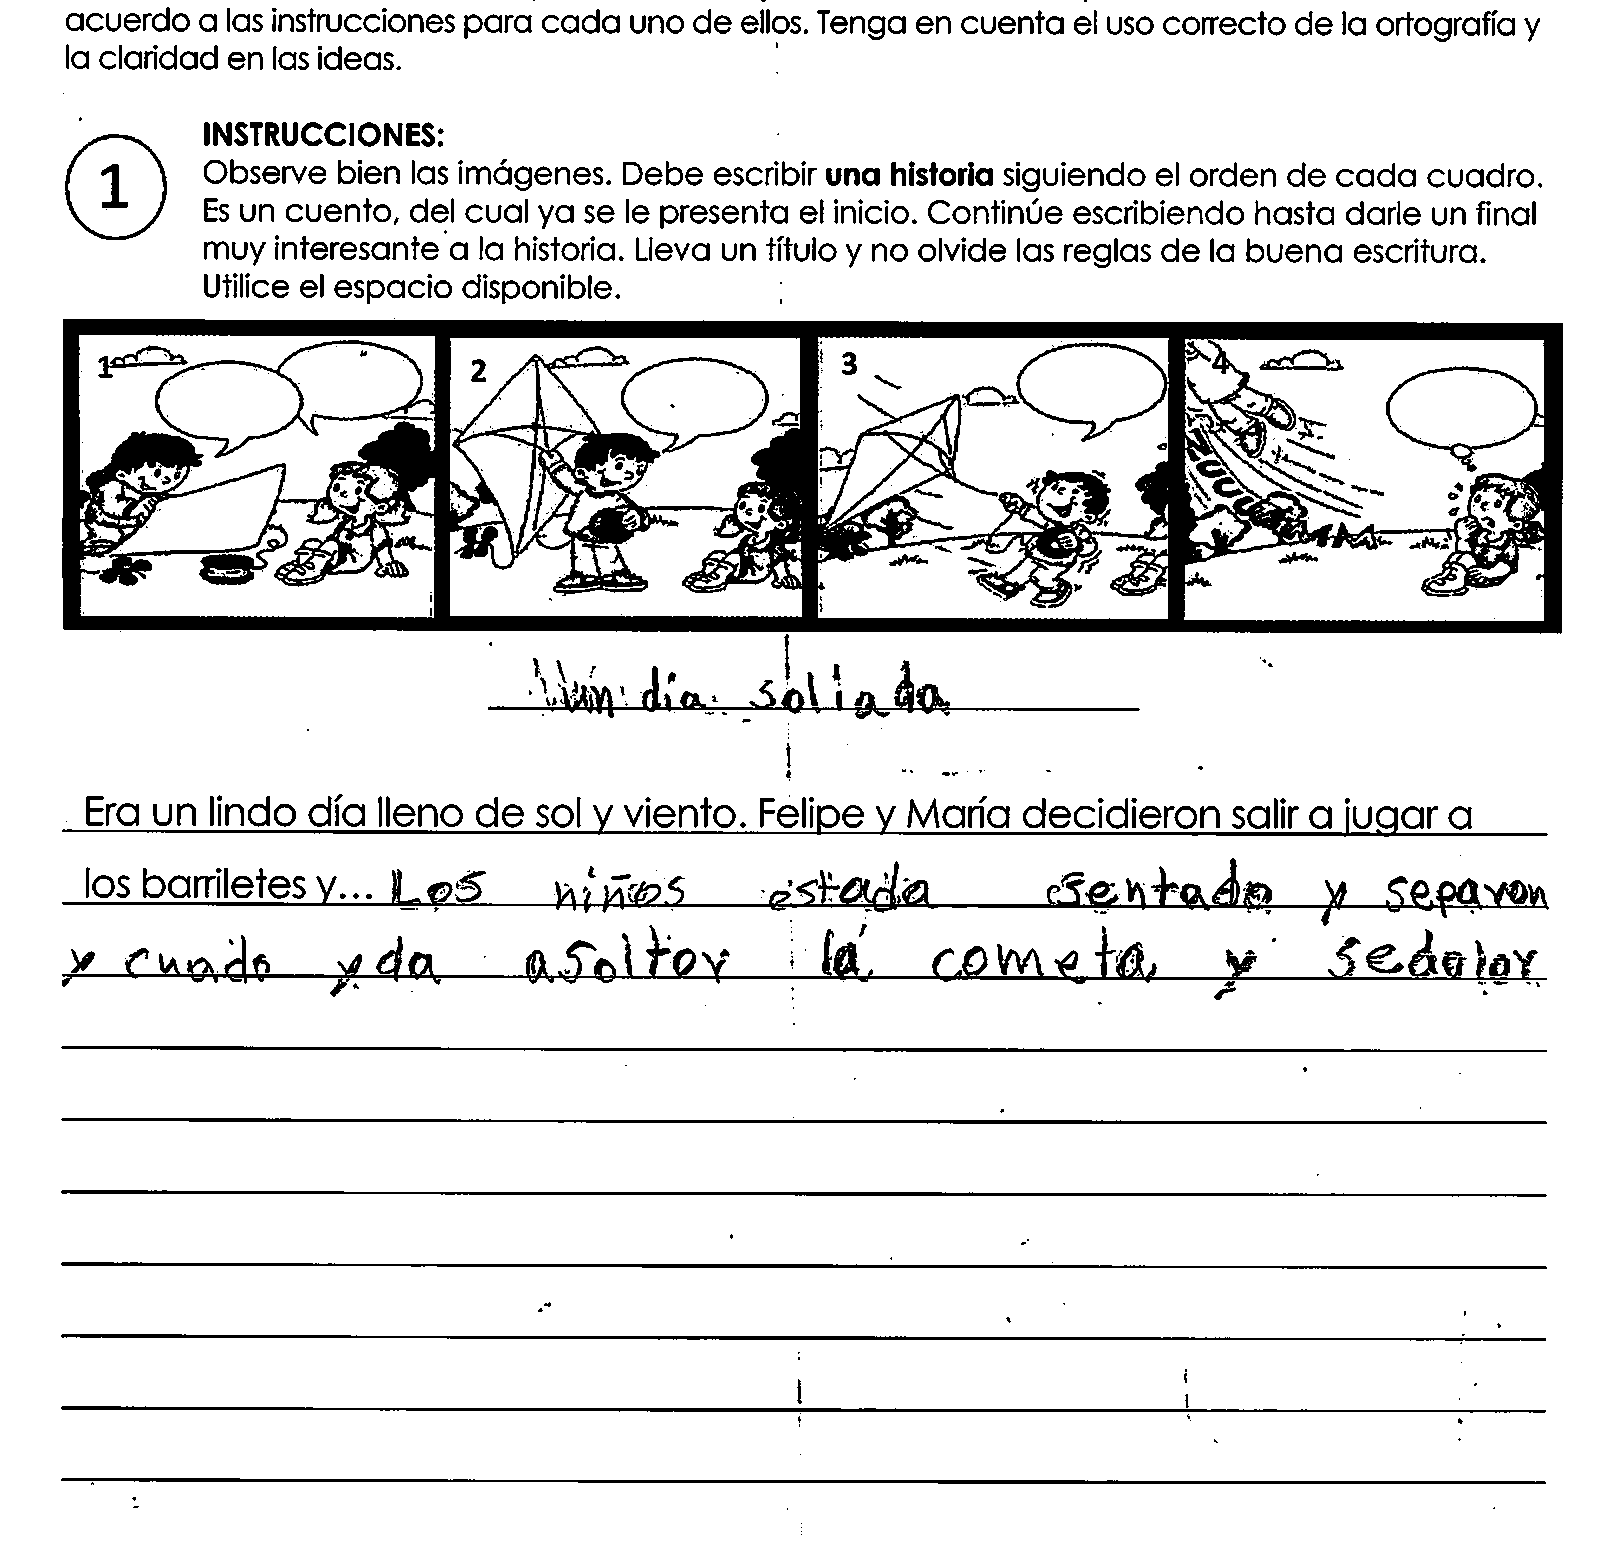 acuerdo a las instrucciones para cada uno de ellos. Tenga en cuenta el uso correcto de la ortografía y
la claridad en las ideas.
1
INSTRUCCIONES:
Observe bien las imágenes. Debe escribir una historia siguiendo el orden de cada cuadro.
Es un cuento, del cual ya se le presenta el inicio. Continúe escribiendo hasta darle un final
muy interesante a la historia. Lleva un título y no olvide las reglas de la buena escritura.
Utilice el espacio disponible.
1 2 3 4
un día soliada
Era un lindo día lleno de sol y viento. Felipe y María decidieron salir a jugar a
los barriletes y... Los niños estada sentado y separon
y cuado y da asoltor la cometa y